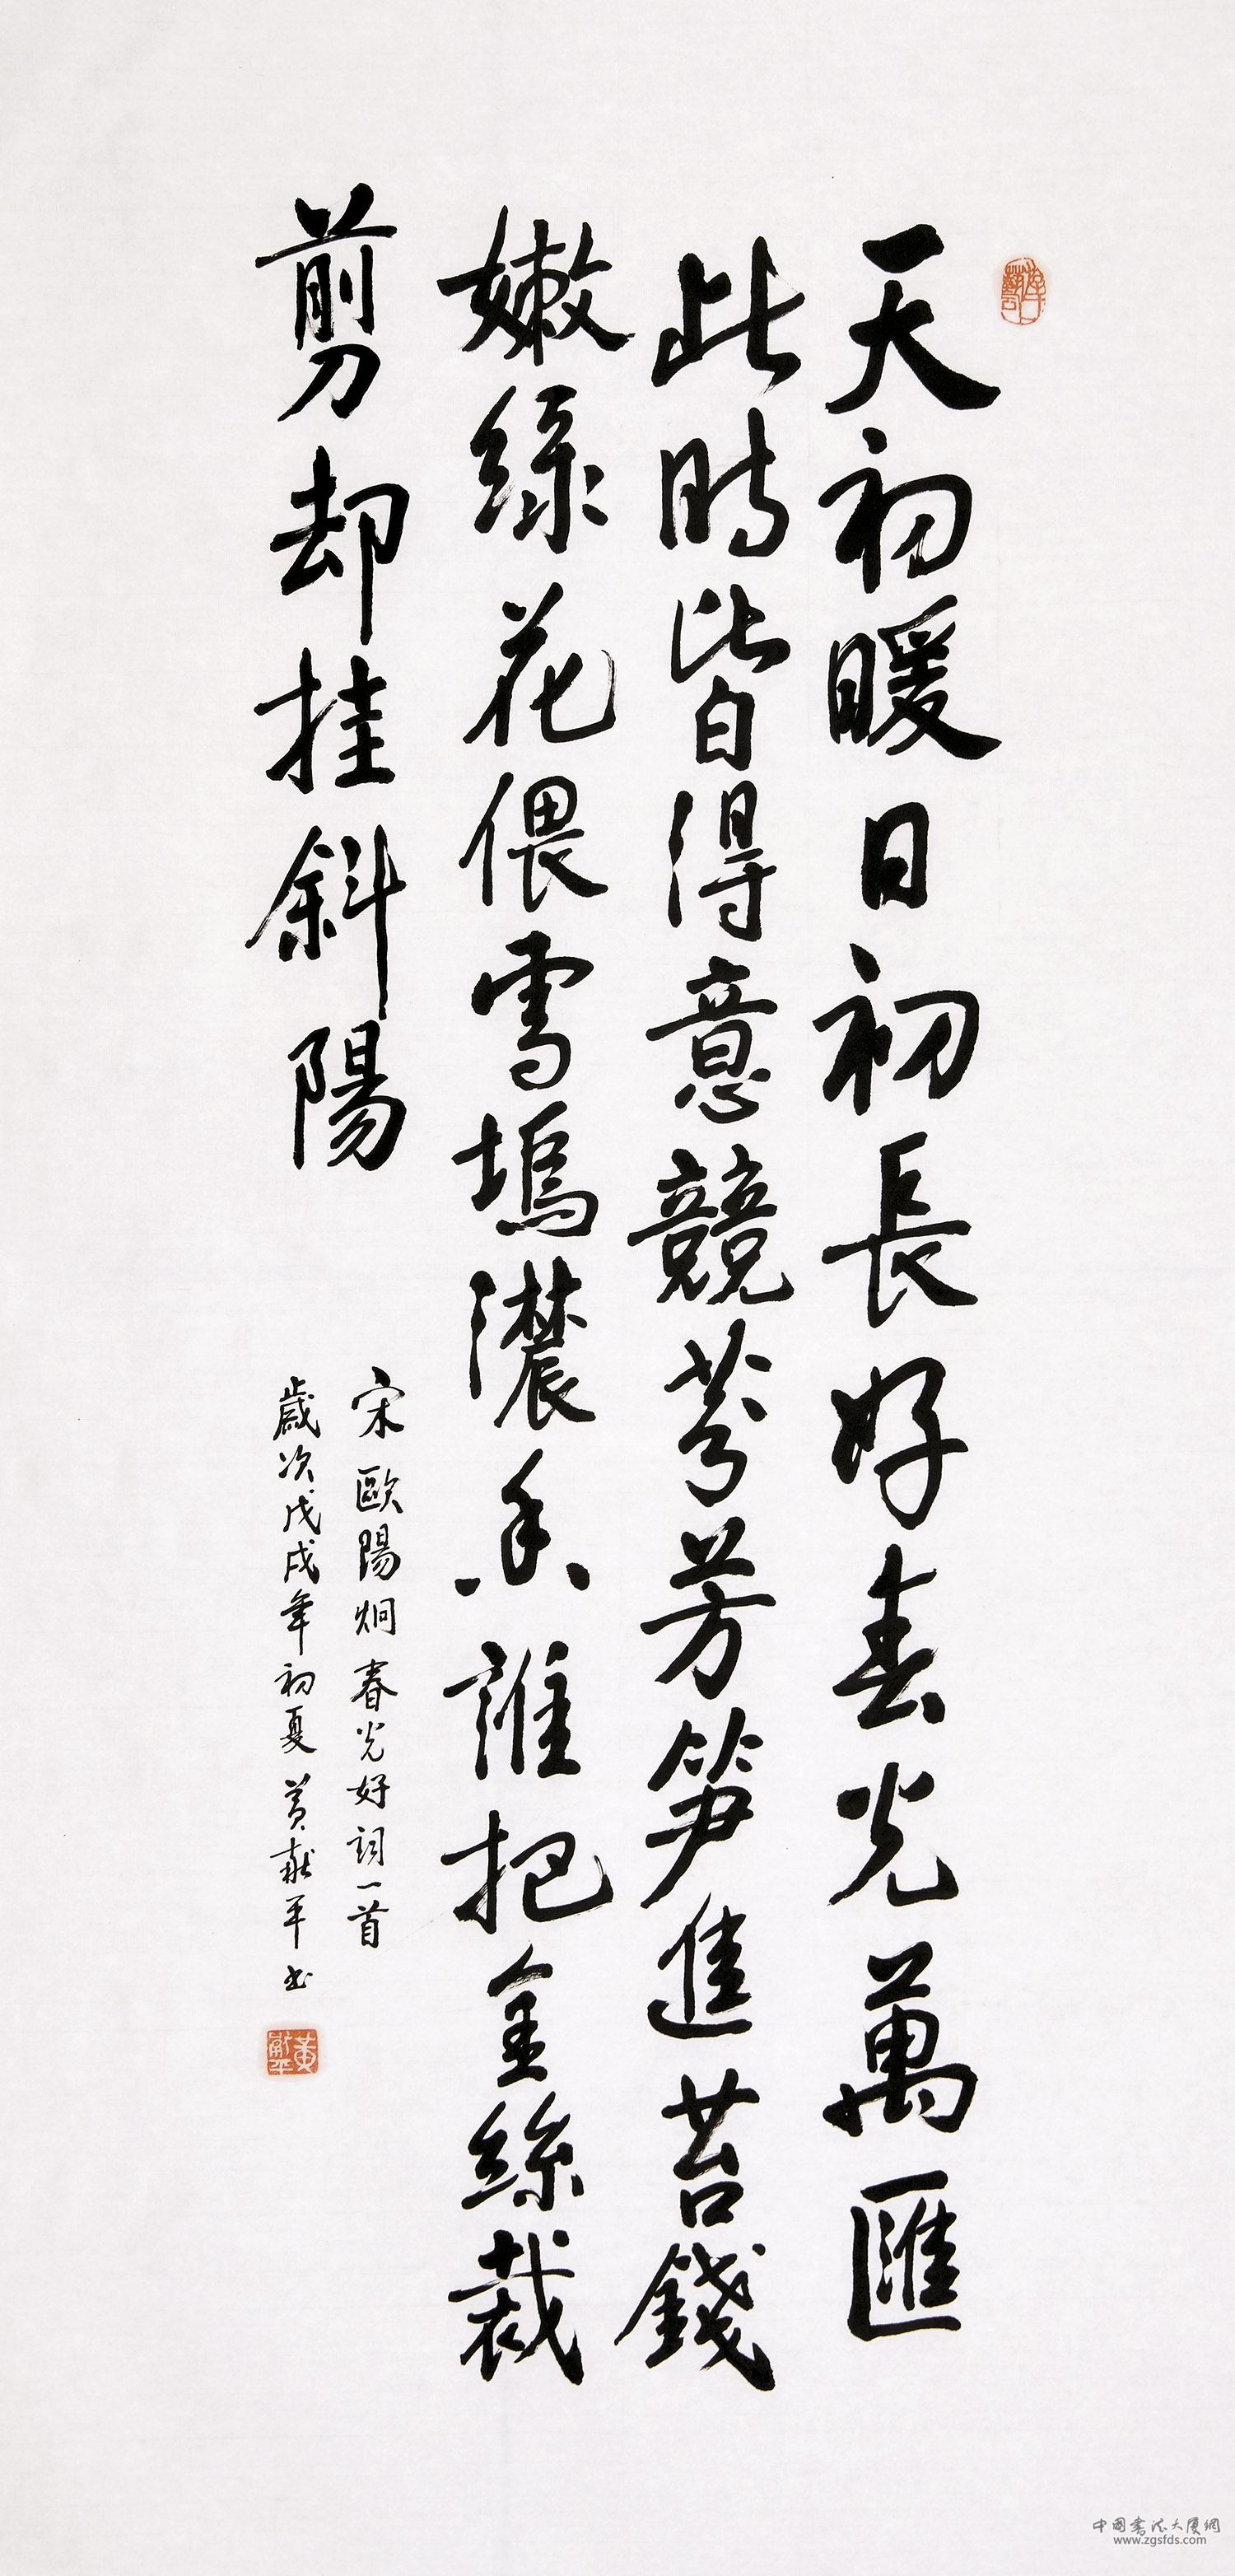 天初暖日初長好春光萬匯
此時皆得意競芬芳笋進苔錢
嫩綠花偎雪塢濃香誰把金絲裁
剪却挂斜陽
宋歐陽炯春光好詞一首
歲次戊戌年初夏黃献平书
中國書法大廈網
www.zgsfds.com